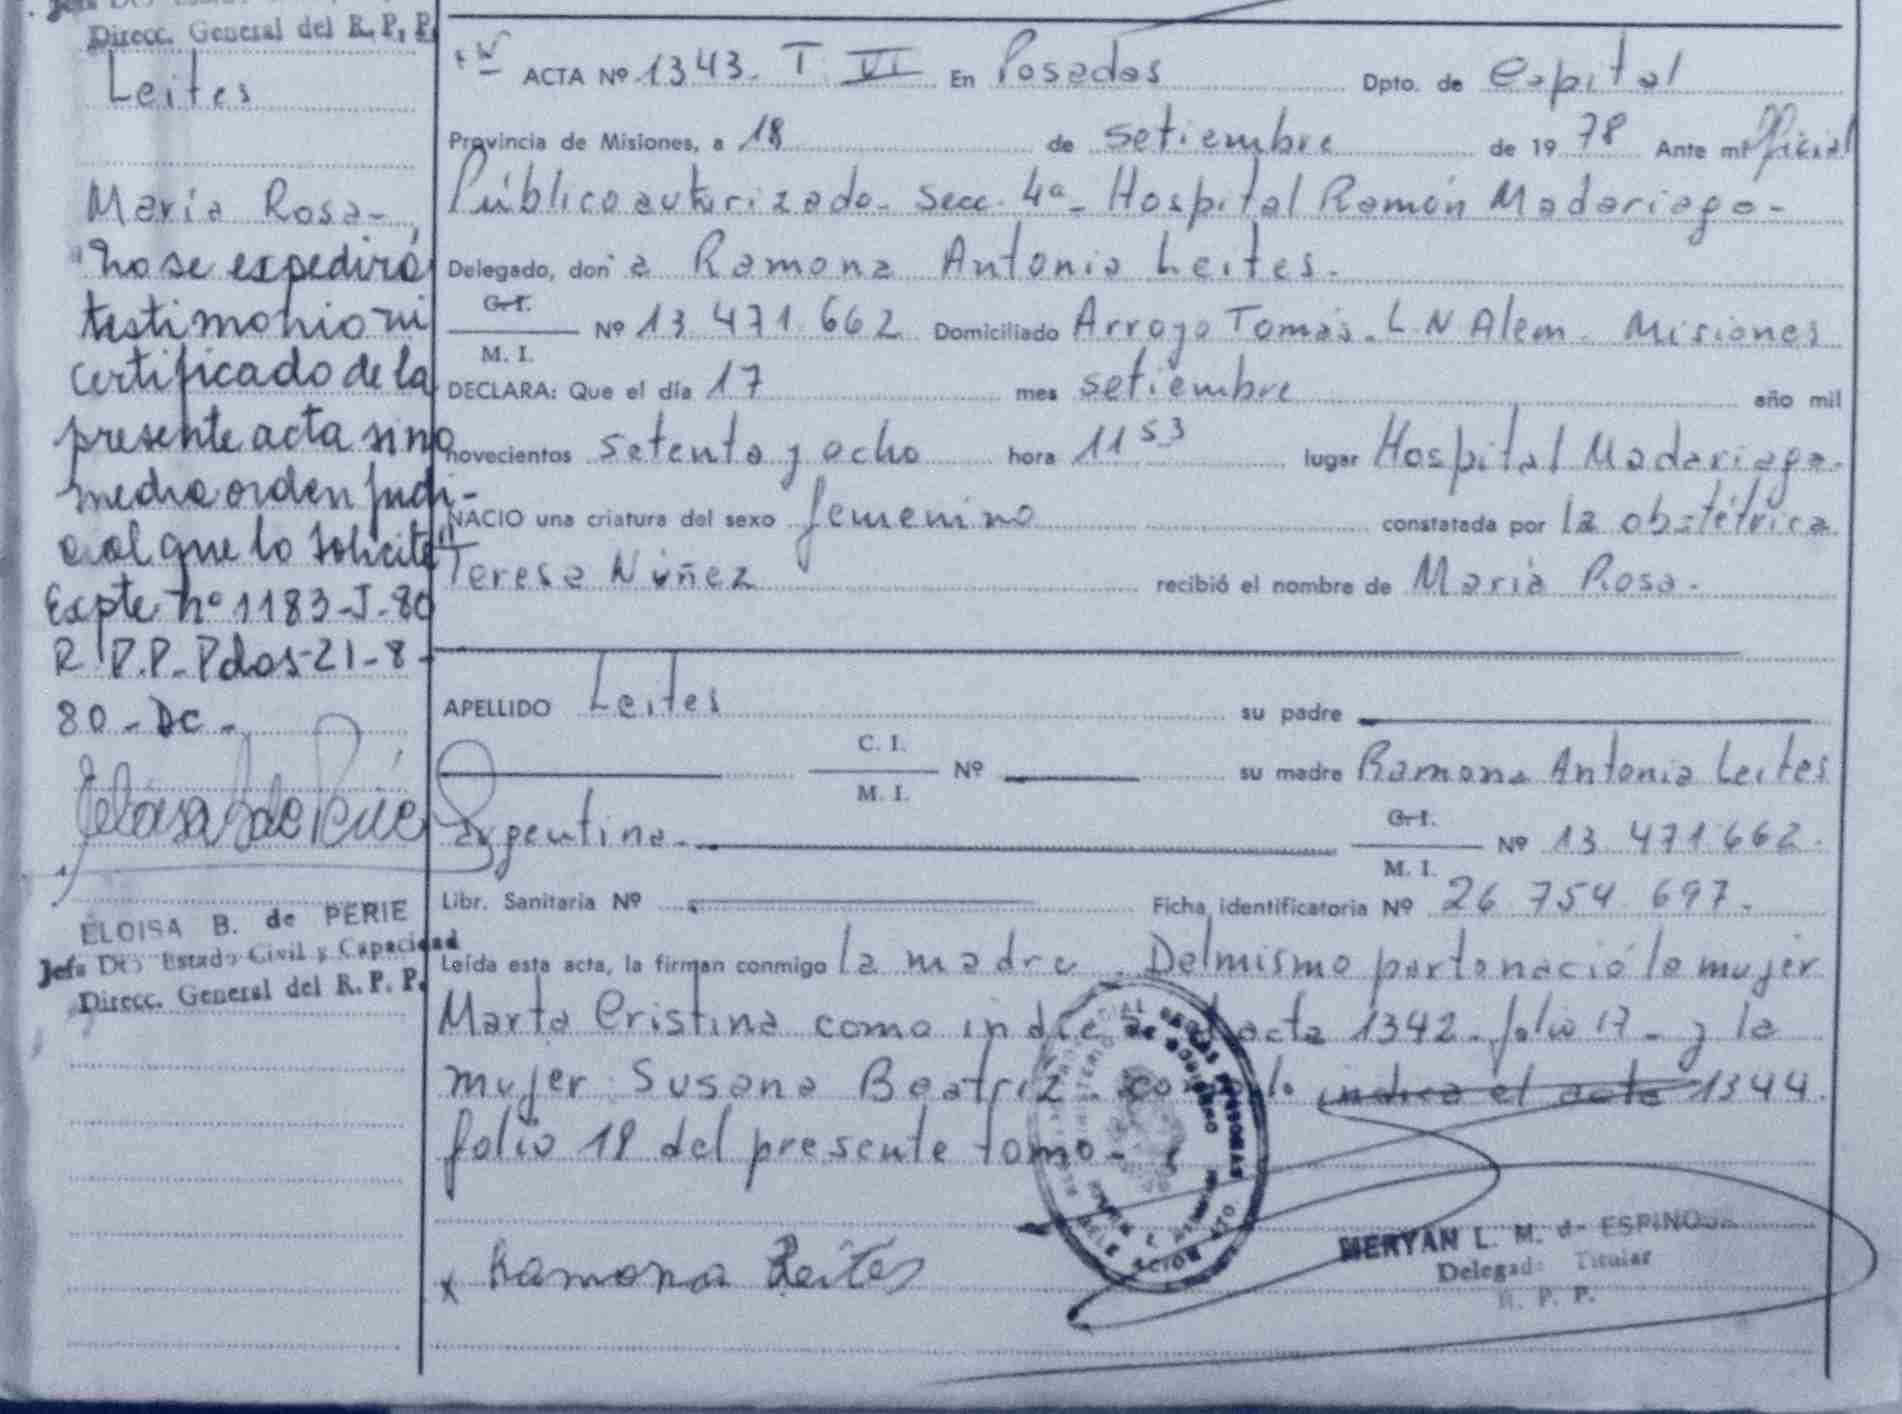 Direcc. General del R. P. P.
Leites
María Rosa-
"No se expedirá
testimonio ni
certificado de la
presente acta si no
media orden judi-
cial que lo solicite"
Expte. nº 1183-J-80
R.P.P. Pdas-21-8-
80-DC-
ELOISA B. de PERIE
Jefa Dto Estado Civil y Capacidad
Direcc. General del R. P. P.
ACTA Nº 1343. T VI En Posadas Dpto. de Capital
Provincia de Misiones, a 18 de setiembre de 1978 Ante mi Oficial
Público autorizado. Secc. 4ª- Hospital Ramón Madariaga-
Delegado, don a Ramona Antonia Leites.
C. I.
M. I. Nº 13.471.662 Domiciliado Arroyo Tomás. L.N Alem. Misiones
DECLARA: Que el día 17 mes setiembre año mil
novecientos setenta y ocho hora 11 53 lugar Hospital Madariaga.
NACIO una criatura del sexo femenino constatada por la obstétrica
Teresa Núñez recibió el nombre de María Rosa.
APELLIDO Leites su padre
C. I.
M. I. Nº su madre Ramona Antonia Leites
argentina. C. I.
M. I. Nº 13.471.662.
Libr. Sanitaria Nº Ficha identificatoria Nº 26.754.697.
Leída esta acta, la firman conmigo la madre. Del mismo parto nació la mujer
Marta Cristina como indica el acta 1342-folio 17- y la
mujer Susana Beatriz como lo indica el acta 1344.
folio 18 del presente tomo-
x Ramona Leites
MERYAN L. M. de ESPINOSA
Delegada Titular
R. P. P.